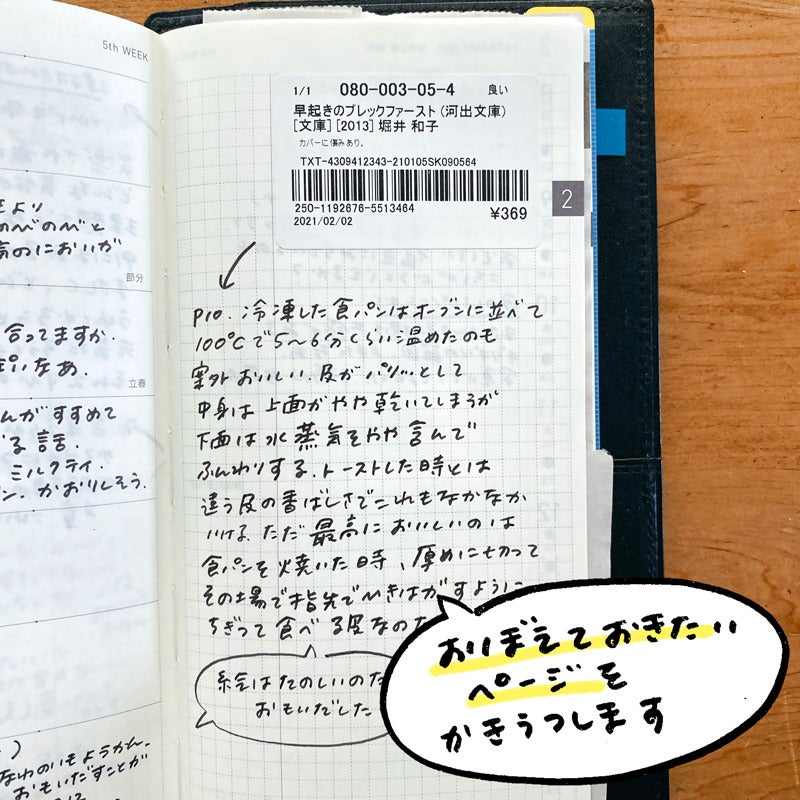 5th WEEK
より
のべのべと
高のにおいが
節分
合ってますか.
ぱいなあ.
立春
んがすすめて
る話.
ミルクティ.
ン. かおりしそう.
なわのいもようかん.
おもいだすことが
1/1 080-003-05-4 良い
早起きのブレックファースト (河出文庫)
[文庫] [2013] 堀井 和子
カバーに傷みあり。
TXT-4309412343-210105SK090564
250-1192676-5513464
¥369
2021/02/02
2
P10. 冷凍した食パンはオーブンに並べて
100℃で5〜6分くらい温めたのも
案外おいしい. 皮がパリッとして
中身は上面がやや乾いてしまうが
下面は水蒸気をやや含んで
ふんわりする. トーストした時とは
違う皮の香ばしさでこれもなかなか
いける. ただ最高においしいのは
食パンを焼いた時、厚めに切って
その場で指先でひきはがすように
ちぎって食べる皮なのだ
絵はたのしいのだ
おもいだした
おぼえておきたい
ページを
かきうつします